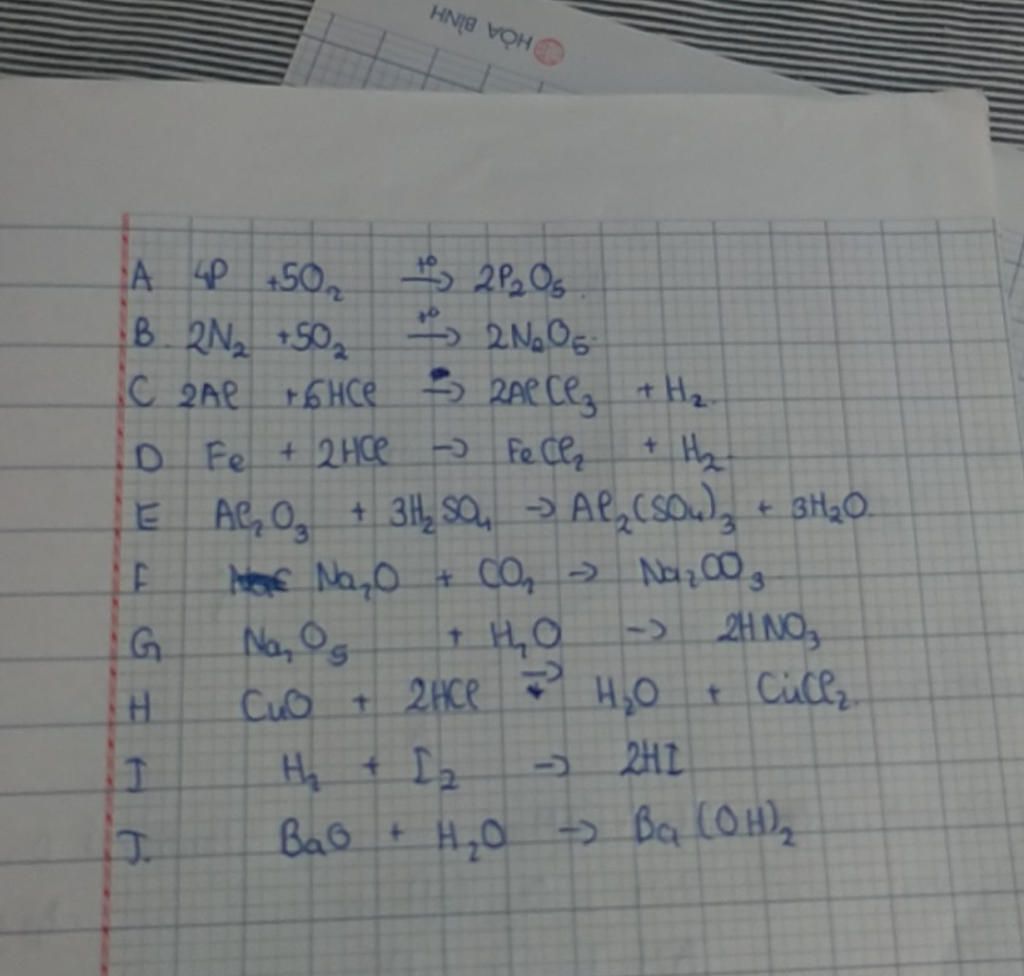 HÒA BÌNH
A 4P +5O₂ →(t°) 2P₂O₅.
B. 2N₂ +5O₂ →(t°) 2N₂O₅.
C 2Al +6HCl → 2AlCl₃ + H₂.
D Fe + 2HCl → FeCl₂ + H₂
E Al₂O₃ + 3H₂SO₄ → Al₂(SO₄)₃ + 3H₂O.
F Na₂O + CO₂ → Na₂CO₃
G Na₂O₅ + H₂O → 2HNO₃
H CuO + 2HCl → H₂O + CuCl₂.
I H₂ + I₂ → 2HI
J. BaO + H₂O → Ba(OH)₂